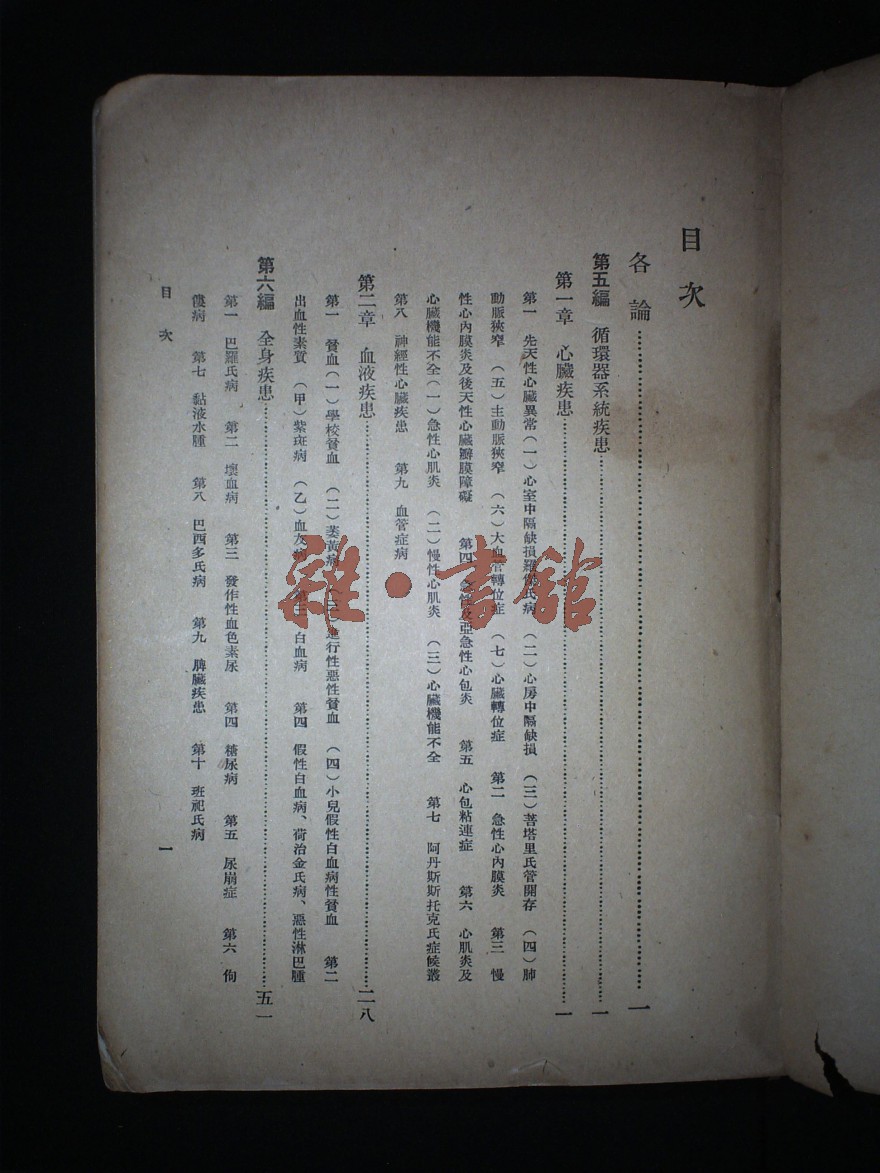 目次
各論 一
第五編 循環器系統疾患 一
第一章 心臟疾患 一
第一 先天性心臟異常(一)心室中隔缺損羅 氏病 (二)心房中隔缺損 (三)菩塔里氏管開存 (四)肺
動脈狹窄 (五)主動脈狹窄 (六)大血管轉位症 (七)心臟轉位症 第二 急性心內膜炎 第三 慢
性心內膜炎及後天性心臟瓣膜障礙 第四 急性及亞急性心包炎 第五 心包粘連症 第六 心肌炎及
心臟機能不全(一)急性心肌炎 (二)慢性心肌炎 (三)心臟機能不全 第七 阿丹斯斯托克氏症候叢
第八 神經性心臟疾患 第九 血管症病
第二章 血液疾患 二八
第一 貧血(一)學校貧血 (二)萎黃病 (三)進行性惡性貧血 (四)小兒假性白血病性貧血 第二
出血性素質 (甲)紫斑病 (乙)血友病 第三 白血病 第四 假性白血病、荷治金氏病、惡性淋巴腫
第六編 全身疾患 五一
第一 巴羅氏病 第二 壞血病 第三 發作性血色素尿 第四 糖尿病 第五 尿崩症 第六 佝
僂病 第七 黏液水腫 第八 巴西多氏病 第九 脾臟疾患 第十 班祀氏病
目次 一
雜·書館